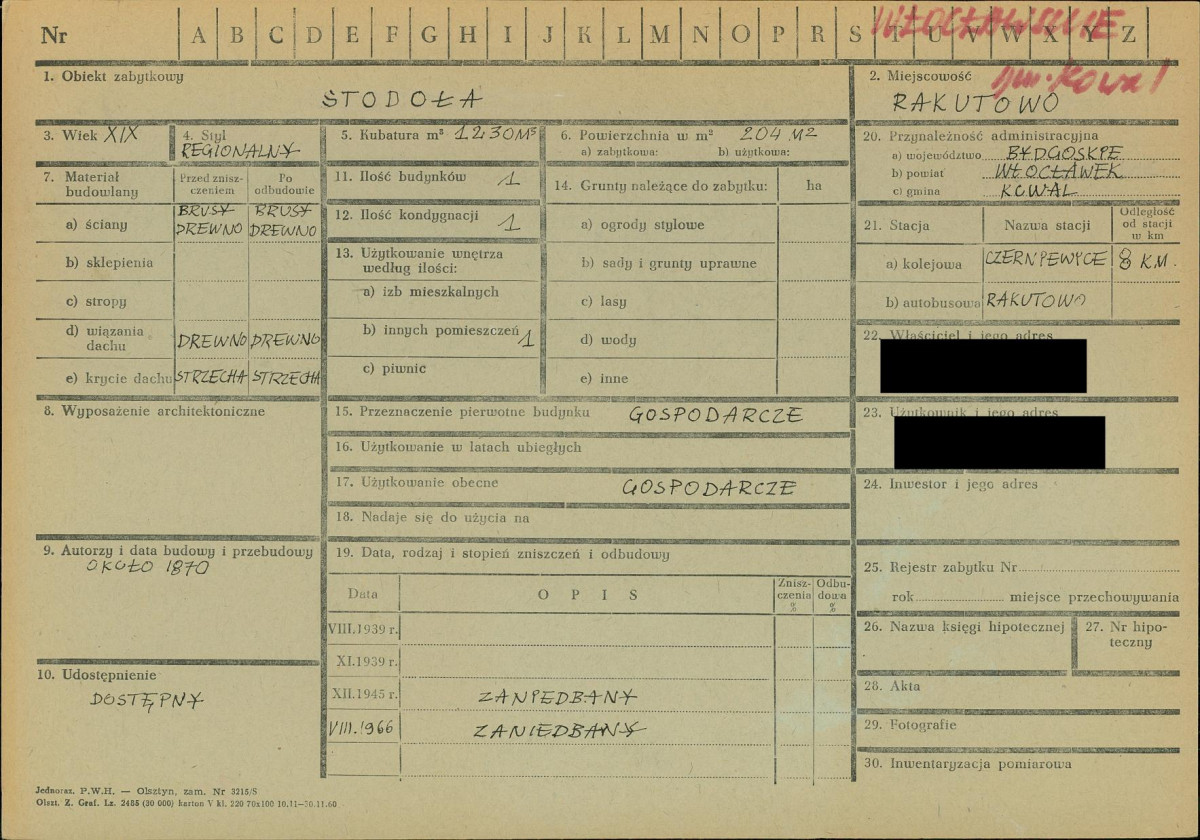 Nr A B C D E F G H I J K L M N O P R S T U V W X Y Z
WŁOCŁAWSKIE
gm. Kowal
1. Obiekt zabytkowy
STODOŁA
2. Miejscowość
RAKUTOWO
3. Wiek XIX
4. Styl
REGIONALNY
5. Kubatura m³ 1230 M³
6. Powierzchnia w m² 204 M2
a) zabytkowa: b) użytkowa:
7. Materiał budowlany
Przed znisz-
czeniem
Po
odbudowie
a) ściany
BRUSY
DREWNO
BRUSY
DREWNO
b) sklepienia
c) stropy
d) wiązania
dachu
DREWNO DREWNO
e) krycie dachu STRZECHA STRZECHA
11. Ilość budynków 1
12. Ilość kondygnacji 1
13. Użytkowanie wnętrza
według ilości:
a) izb mieszkalnych
b) innych pomieszczeń 1
c) piwnic
14. Grunty należące do zabytku: ha
a) ogrody stylowe
b) sady i grunty uprawne
c) lasy
d) wody
e) inne
20. Przynależność administracyjna
a) województwo BYDGOSKIE
b) powiat WŁOCŁAWEK
c) gmina KOWAL
21. Stacja
Nazwa stacji
Odległość
od stacji
w km
a) kolejowa CZERNIEWICE 8 KM.
b) autobusowa RAKUTOWO
22. Właściciel i jego adres
23. Użytkownik i jego adres
24. Inwestor i jego adres
8. Wyposażenie architektoniczne
15. Przeznaczenie pierwotne budynku GOSPODARCZE
16. Użytkowanie w latach ubiegłych
17. Użytkowanie obecne GOSPODARCZE
18. Nadaje się do użycia na
9. Autorzy i data budowy i przebudowy
OKOŁO 1870
10. Udostępnienie
DOSTĘPNY
19. Data, rodzaj i stopień zniszczeń i odbudowy
Data
OPIS
Znisz-
czenia
%
Odbu-
dowa
%
VIII.1939 r.
XI.1939 r.
XII.1945 r. ZANIEDBANY
VIII.1966 ZANIEDBANY
25. Rejestr zabytku Nr
rok miejsce przechowywania
26. Nazwa księgi hipotecznej
27. Nr hipo-
teczny
28. Akta
29. Fotografie
30. Inwentaryzacja pomiarowa
Jednoraz. P.W.H. — Olsztyn, zam. Nr 3215/S
Olszt. Z. Graf. Lz. 2485 (30 000) karton V kl. 220 70x100 10.11—30.11.60